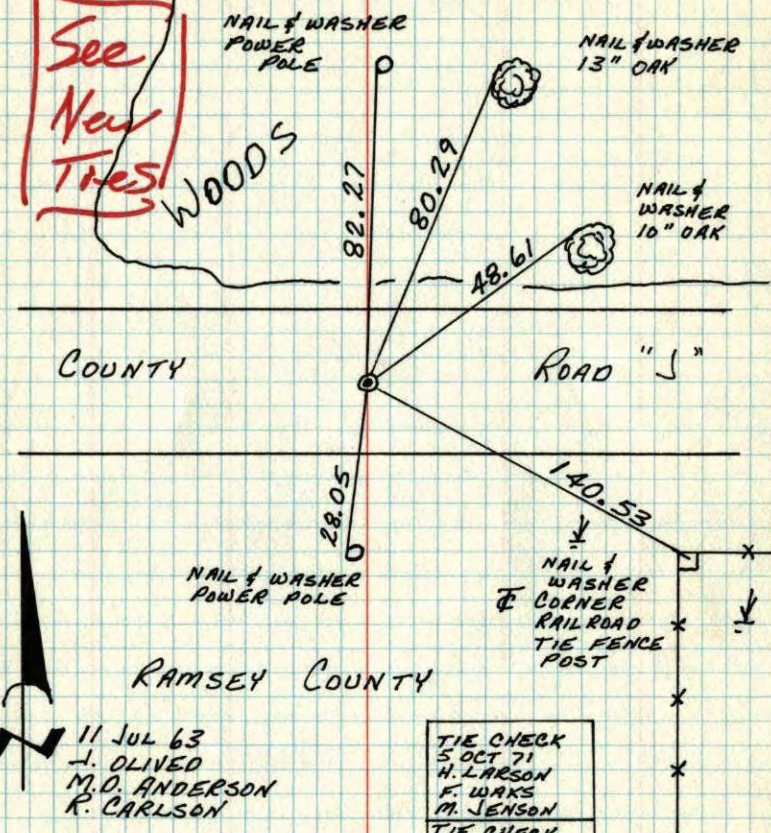 See
New
Ties
NAIL & WASHER
POWER
POLE
NAIL & WASHER
13" OAK
WOODS
82.27
80.29
NAIL &
WASHER
10" OAK
48.61
COUNTY ROAD "J"
28.05
140.53
NAIL & WASHER
POWER POLE
NAIL &
WASHER
CORNER
RAILROAD
TIE FENCE
POST
RAMSEY COUNTY
11 JUL 63
J. OLIVED
M.D. ANDERSON
R. CARLSON
TIE CHECK
5 OCT 71
H. LARSON
F. WAKS
M. JENSON
TIE CHECK